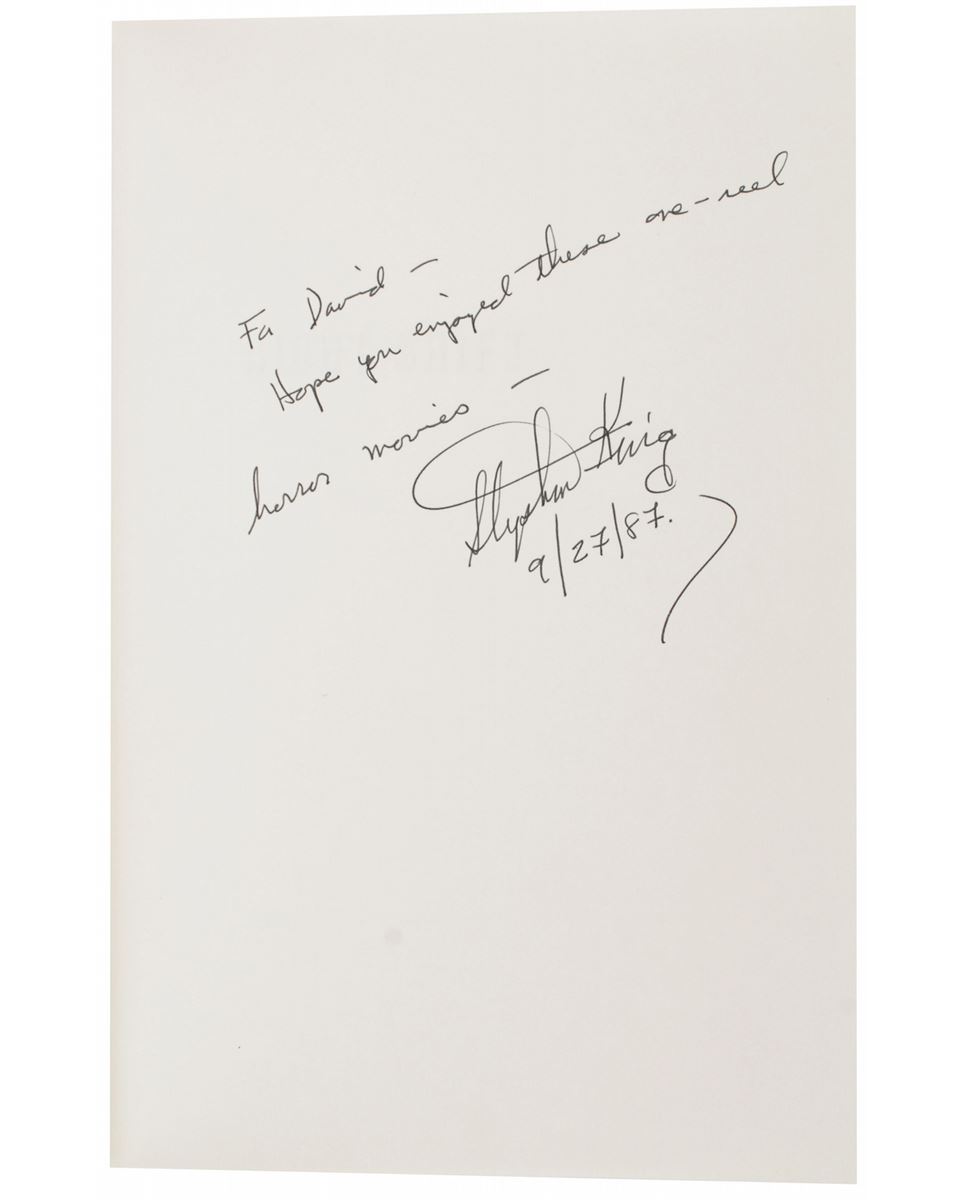 For David –
Hope you enjoyed these one-reel
horror movies –
Stephen King
9/27/87.